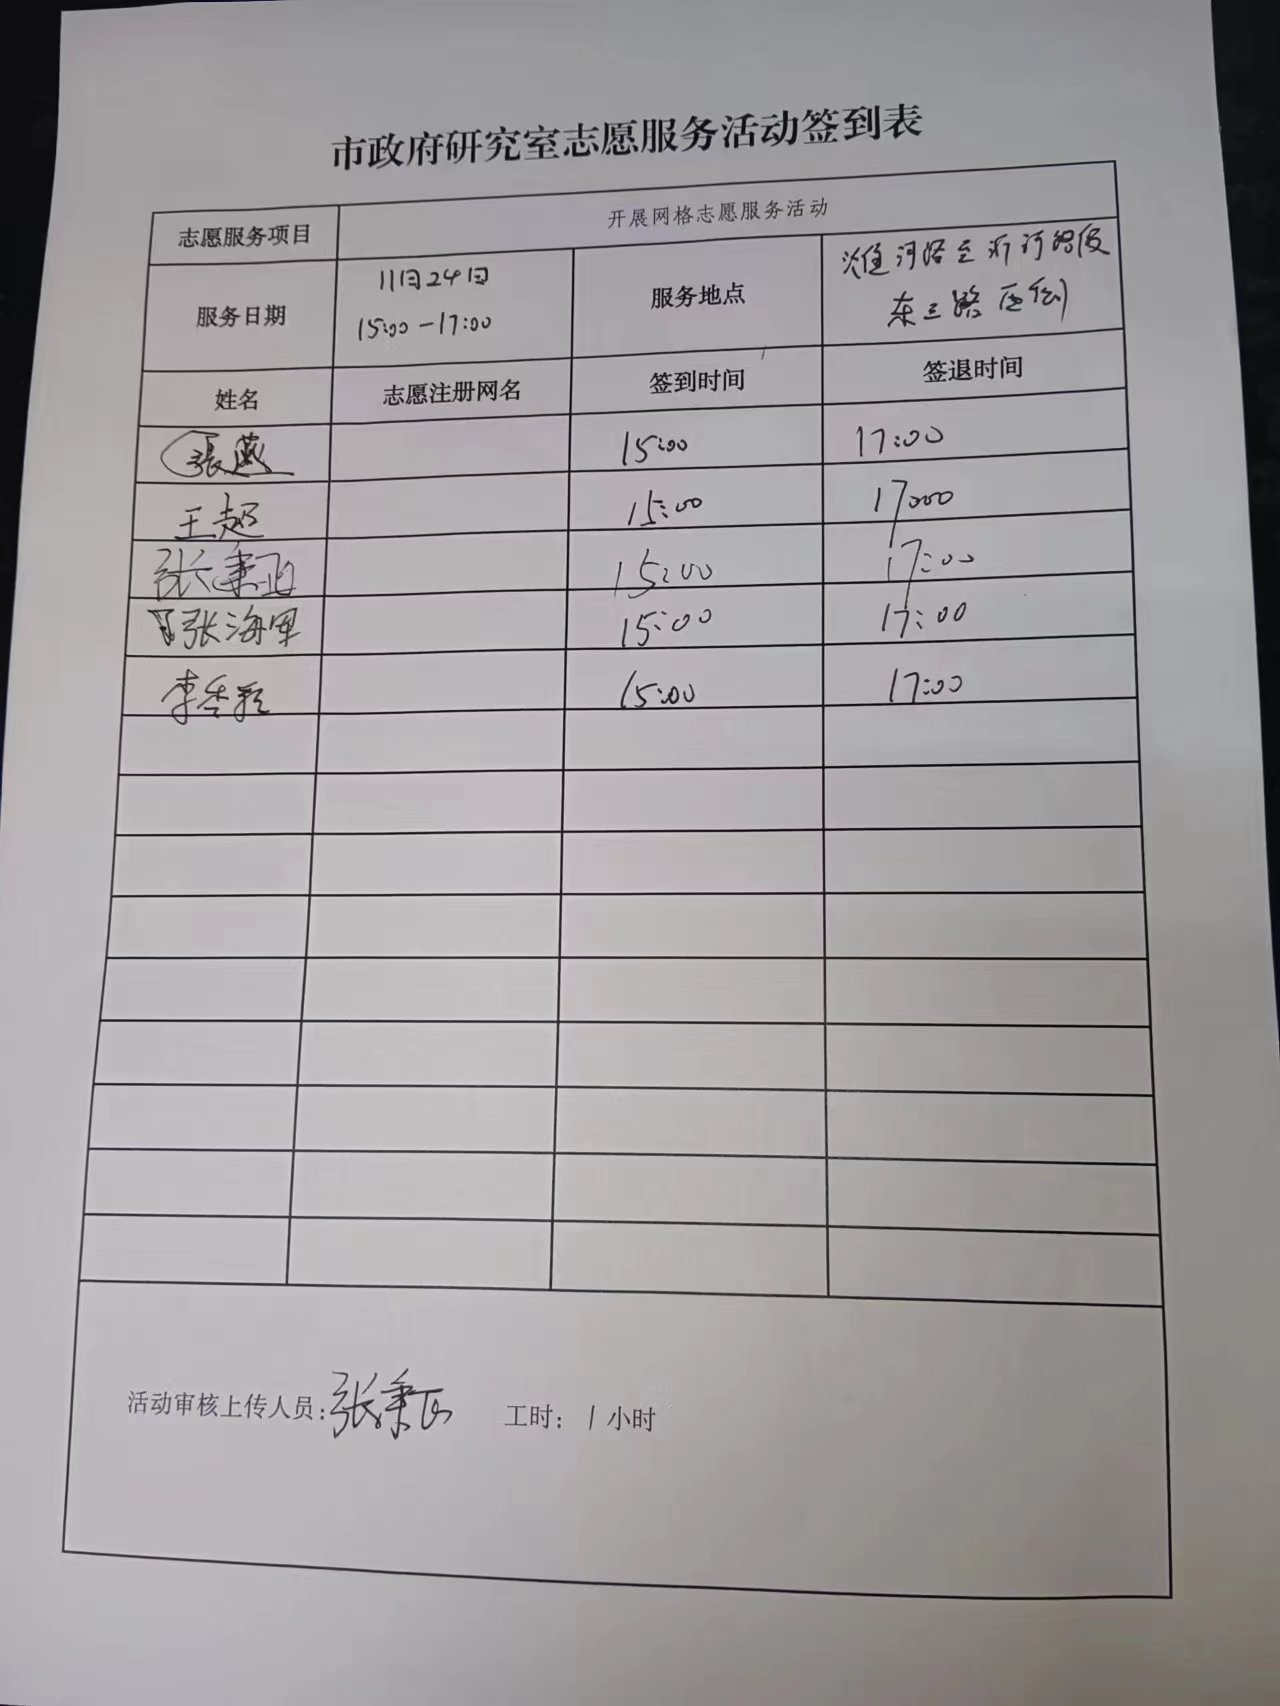 市政府研究室志愿服务活动签到表
志愿服务项目 开展网格志愿服务活动
服务日期 11月24日 15:00-17:00 服务地点 潍河路至沂河路段 东三路西侧
姓名 志愿注册网名 签到时间 签退时间
張燕 15:00 17:00
王超 15:00 17:00
张秉正 15:00 17:00
张海军 15:00 17:00
李 15:00 17:00
活动审核上传人员:张秉正 工时: 1小时